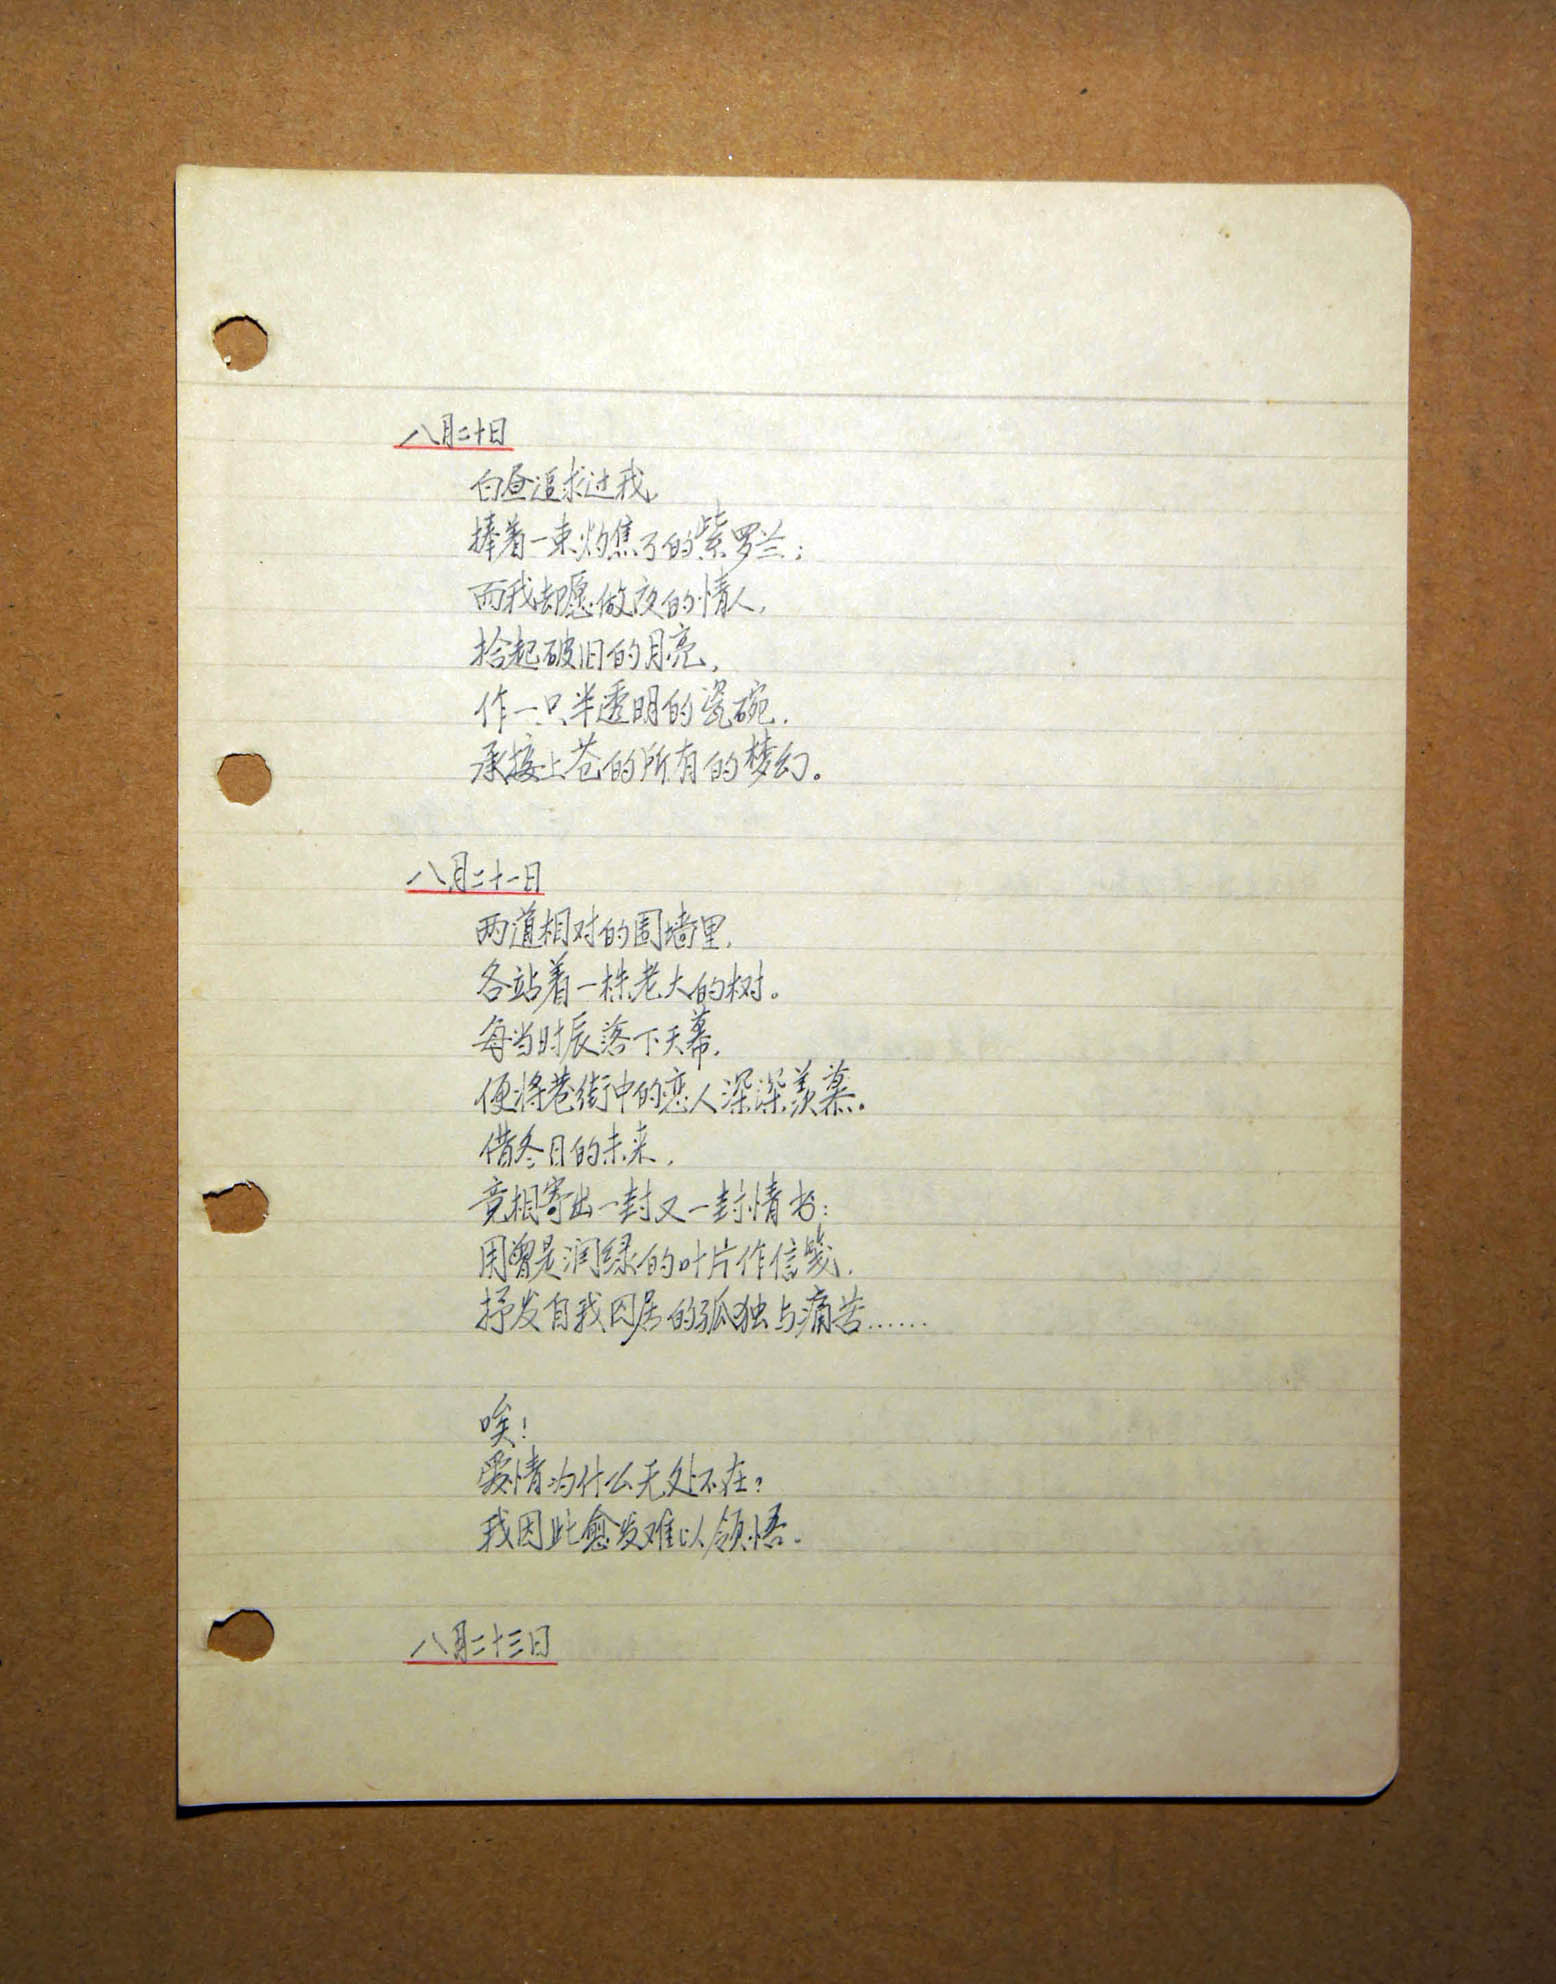 八月二十日
白昼追求过我，
捧着一束灼焦了的紫罗兰；
而我却愿做夜的情人，
拾起破旧的月亮，
作一只半透明的瓷碗，
承接上苍的所有的梦幻。
八月二十一日
两道相对的围墙里，
各站着一株老大的树。
每当时辰落下天幕，
便将巷街中的恋人深深羡慕。
借冬日的未来，
竞相寄出一封又一封情书：
用曾是润绿的叶片作信笺，
抒发自我囚居的孤独与痛苦……
唉！
爱情为什么无处不在？
我因此愈发难以领悟。
八月二十三日